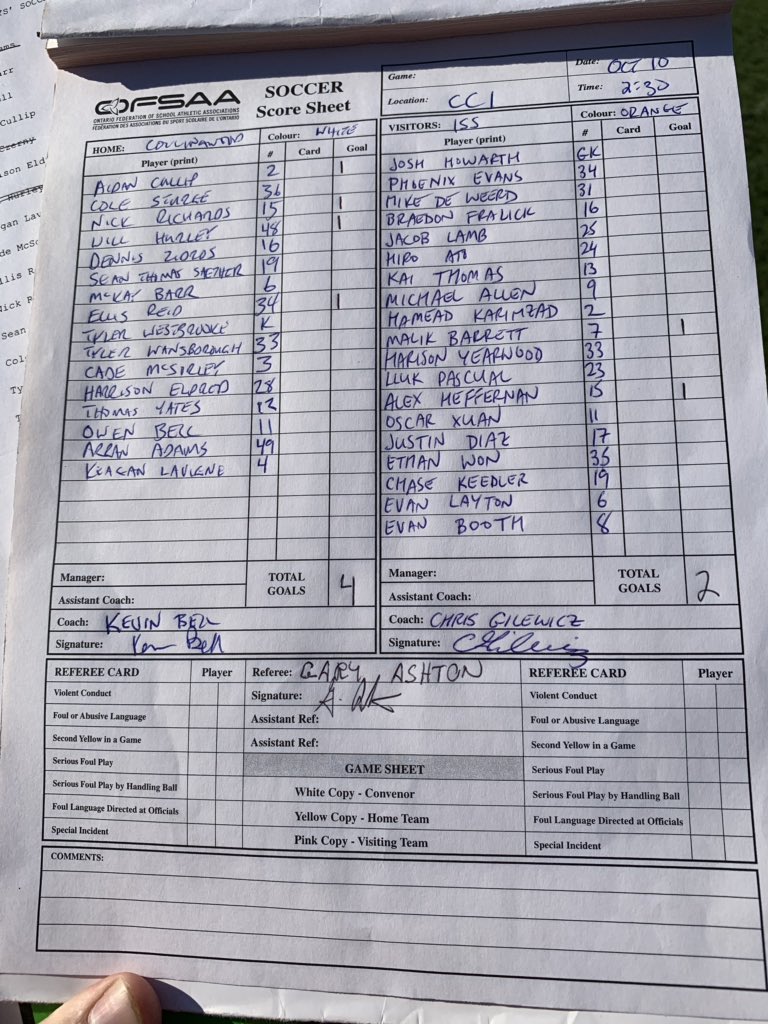 OFSAA
ONTARIO FEDERATION OF SCHOOL ATHLETIC ASSOCIATIONS
FÉDÉRATION DES ASSOCIATIONS DU SPORT SCOLAIRE DE L'ONTARIO
SOCCER
Score Sheet
Game:
Date: OCT 10
Location: CCI
Time: 2:30
HOME: COLLINGWOOD Colour: WHITE
Player (print) # Card Goal
AIDAN CULLIP 2 1
COLE 36
NICK RICHARDS 15 1
WILL HURLEY 48 1
DENNIS 16
SEAN THOMAS 19
MCKAY BARR 6
ELLIS REID 34 1
TYLER WESTBROOKE K
TYLER WANSBOROUGH 33
CADE 3
HARRISON ELDRED 28
THOMAS YATES 12
OWEN BELL 11
ARRAN ADAMS 49
KEAGAN LAVIGNE 4
Manager:
Assistant Coach:
TOTAL GOALS 4
Coach: KEVIN BELL
Signature: Kevin Bell
VISITORS: ISS Colour: ORANGE
Player (print) # Card Goal
JOSH HOWARTH GK
PHOENIX EVANS 34
MIKE DE WEERD 31
BRAEDON FRALICK 16
JACOB LAMB 25
HIRO 24
KAI THOMAS 13
MICHAEL ALLEN 9
HAMEAD KARIMZAD 2
MALIK BARRETT 7 1
HARISON YEARWOOD 33
LUK PASCUAL 23
ALEX HEFFERNAN 15 1
OSCAR XUAN 11
JUSTIN DIAZ 17
ETHAN WON 35
CHASE KEEDLER 19
EVAN LAYTON 6
EVAN BOOTH 8
Manager:
Assistant Coach:
TOTAL GOALS 2
Coach: CHRIS GILEWICZ
Signature:
REFEREE CARD Player
Violent Conduct
Foul or Abusive Language
Second Yellow in a Game
Serious Foul Play
Serious Foul Play by Handling Ball
Foul Language Directed at Officials
Special Incident
Referee: GARY ASHTON
Signature:
Assistant Ref:
Assistant Ref:
GAME SHEET
White Copy - Convenor
Yellow Copy - Home Team
Pink Copy - Visiting Team
REFEREE CARD Player
Violent Conduct
Foul or Abusive Language
Second Yellow in a Game
Serious Foul Play
Serious Foul Play by Handling Ball
Foul Language Directed at Officials
Special Incident
COMMENTS: